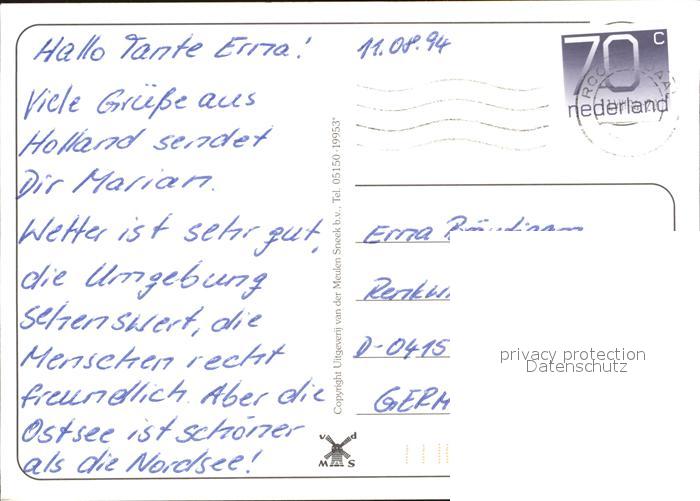 Hallo Tante Erna!
Viele Grüße aus
Holland sendet
Dir Marian.
Wetter ist sehr gut,
die Umgebung
sehenswert, die
Menschen recht
freundlich. Aber die
Ostsee ist schöner
als die Nordsee!
Copyright Uitgeverij van der Meulen Sneek b.v., Tel. 05150-19953*
v d
M S
11.08.94
70 c
nederland
Erna
D-0415
GERM
privacy protection
Datenschutz